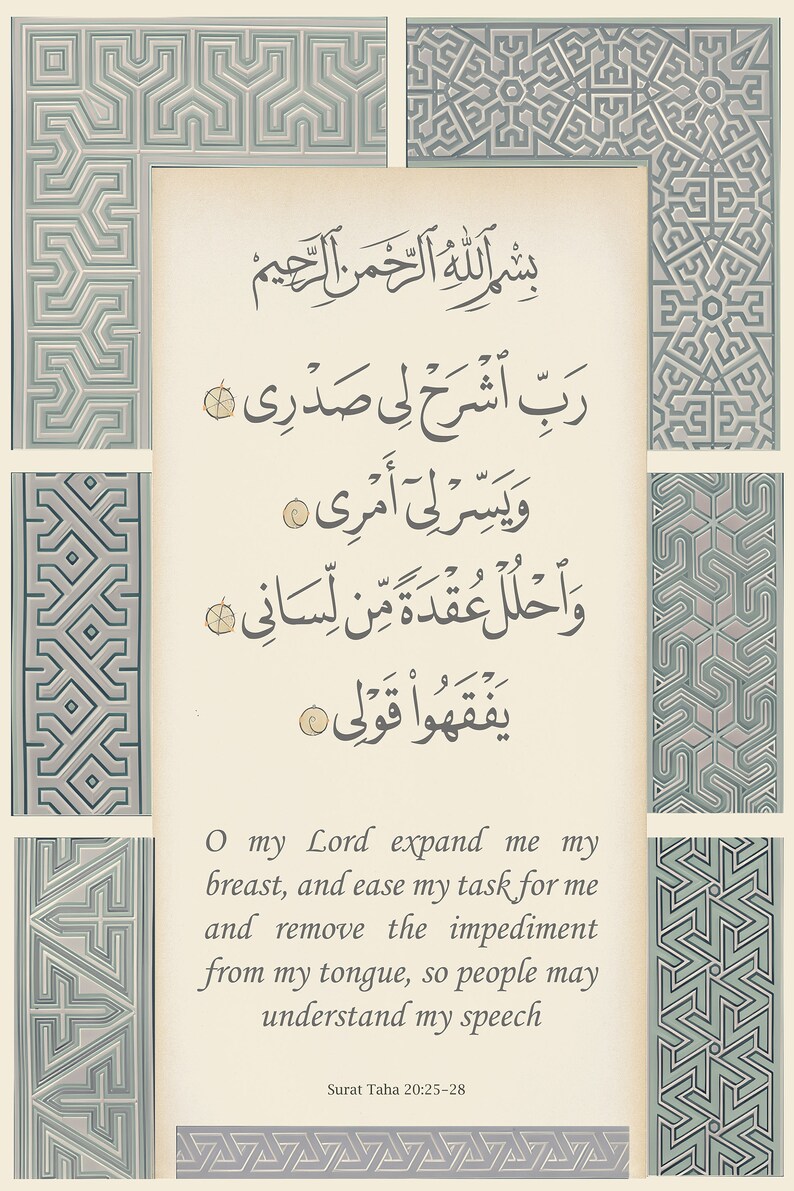 بِسْمِ ٱللَّهِ ٱلرَّحْمَٰنِ ٱلرَّحِيمِ
رَبِّ ٱشْرَحْ لِى صَدْرِى
وَيَسِّرْ لِىٓ أَمْرِى
وَٱحْلُلْ عُقْدَةً مِّن لِّسَانِى
يَفْقَهُوا۟ قَوْلِى
O my Lord expand me my
breast, and ease my task for me
and remove the impediment
from my tongue, so people may
understand my speech
Surat Taha 20:25-28